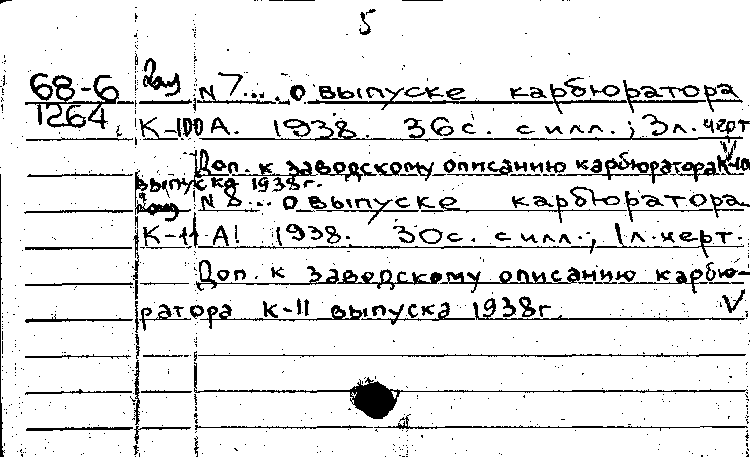 5
68-6 N 7 ... о выпуске карбюратора
1264 К-100 А. 1938. 36 с. с илл.; 3 л. черт
Доп. к заводскому описанию карбюратора
выпуска 1938 г.
N 8 ... о выпуске карбюратора
К-11 А! 1938. 30 с. с илл.; 1 л. черт.
Доп. к заводскому описанию карбю-
ратора К-11 выпуска 1938 г. V